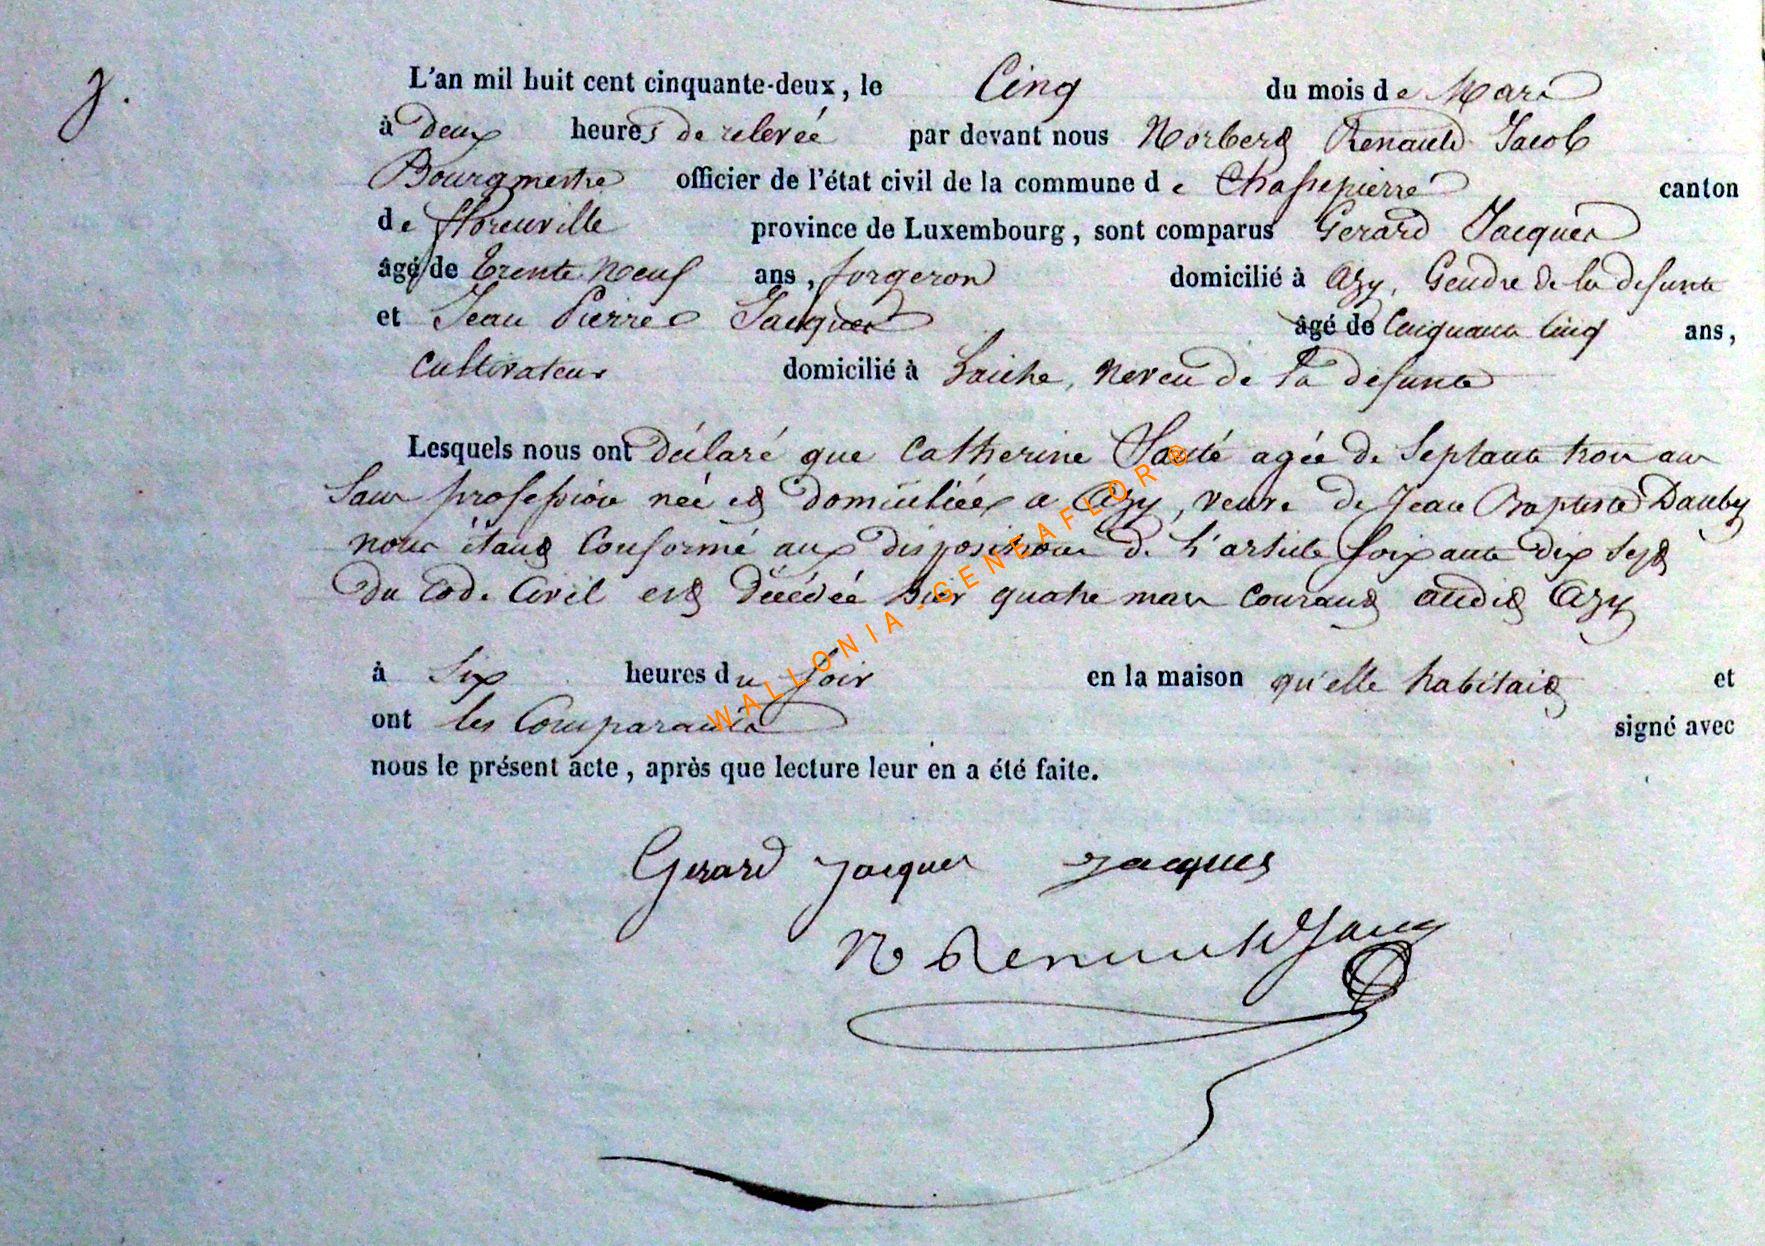 7.
L'an mil huit cent cinquante-deux, le Cinq du mois de Mars
à deux heures de relevée par devant nous Norbert Renauld Jacob
Bourgmestre officier de l'état civil de la commune de Chassepierre canton
de florenville province de Luxembourg, sont comparus Gerard Jacques
âgé de trente neuf ans, forgeron domicilié à Azy, Gendre de la defunte
et Jean Pierre Jacques âgé de Cinquante Cinq ans,
cultivateur domicilié à Laiche, Neveu de la defunte
Lesquels nous ont déclaré que Catherine agée de Septante trois ans
Sans profession née et domiciliée a Azy, veuve de Jean Baptiste Dauby
nous étant Conformé aux dispositions de l'article soixante dix sept
du Code Civil est décédée hier quatre mars courant audit Azy
à Six heures du soir en la maison qu'elle habitait et
ont les Comparants signé avec
nous le présent acte, après que lecture leur en a été faite.
Gerard Jacques Jacques
N Renauld Jacob
WALLONIA-GENEAFLOR®